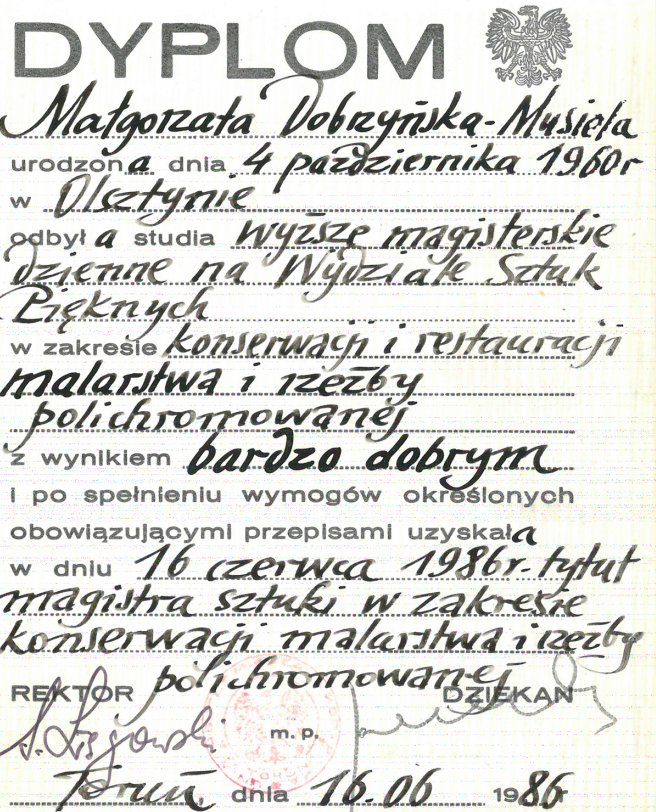 DYPLOM
Małgorzata Dobrzyńska-Musiela
urodzona dnia 4 października 1960r
w Olsztynie
odbyła studia wyższe magisterskie
dzienne na Wydziale Sztuk
Pięknych
w zakresie konserwacji i restauracji
malarstwa i rzeźby
polichromowanej
z wynikiem bardzo dobrym
i po spełnieniu wymogów określonych
obowiązującymi przepisami uzyskała
w dniu 16 czerwca 1986r. tytuł
magistra sztuki w zakresie
konserwacji malarstwa i rzeźby
polichromowanej
REKTOR DZIEKAN
m. p.
Toruń, dnia 16.06 1986r